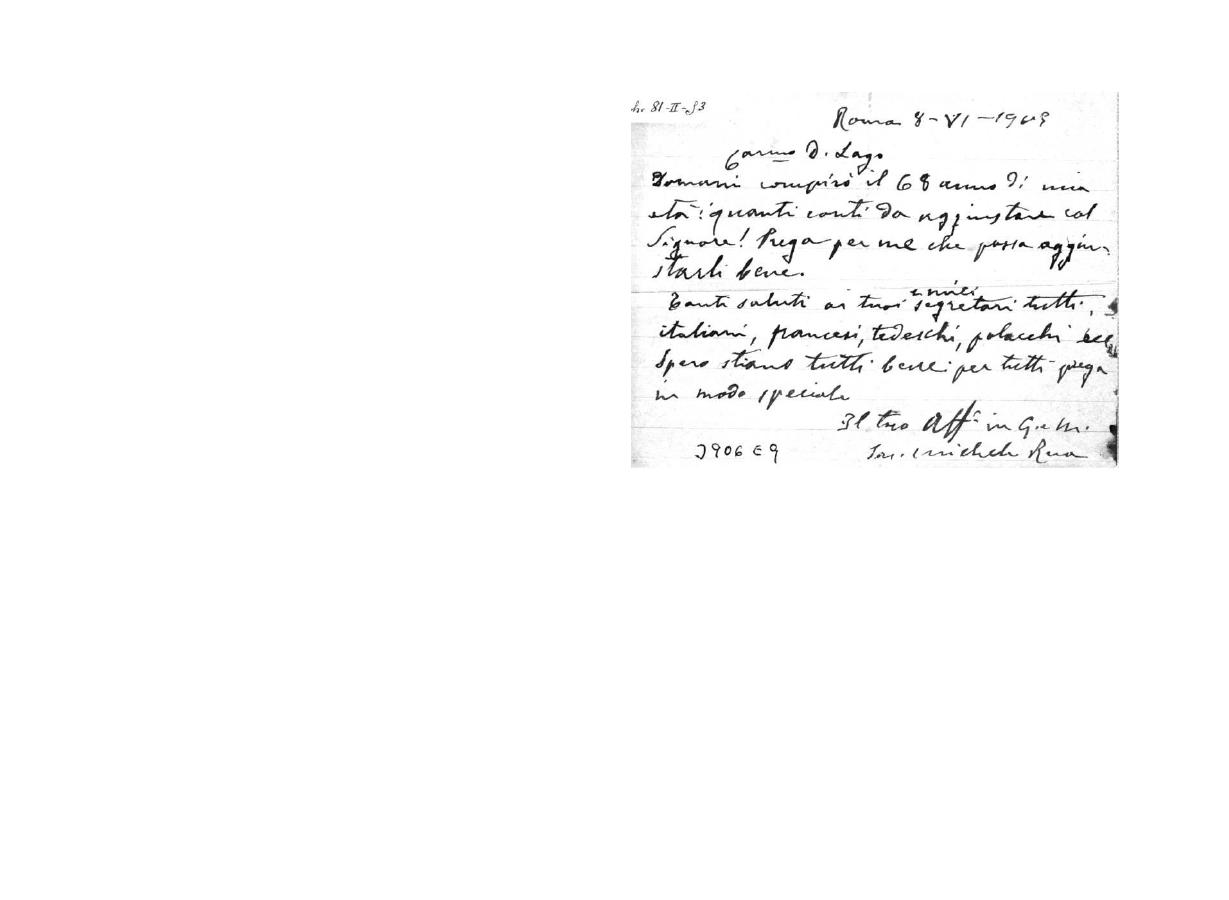 81-II-93
Roma 8-VI-1905
Carmo D. Lago
Domani compirò il 68 anno di mia
età! quanti conti da aggiustare col
Signore! Prega per me che possa aggiu-
starli bene.
Tanti saluti ai tuoi amici segretari tutti,
italiani, francesi, tedeschi, polacchi ecc
Spero stiano tutti bene: per tutti prega
in modo speciale
Il tuo Aff. in G. e M.
Sac. Michele Rua
3906 E 9